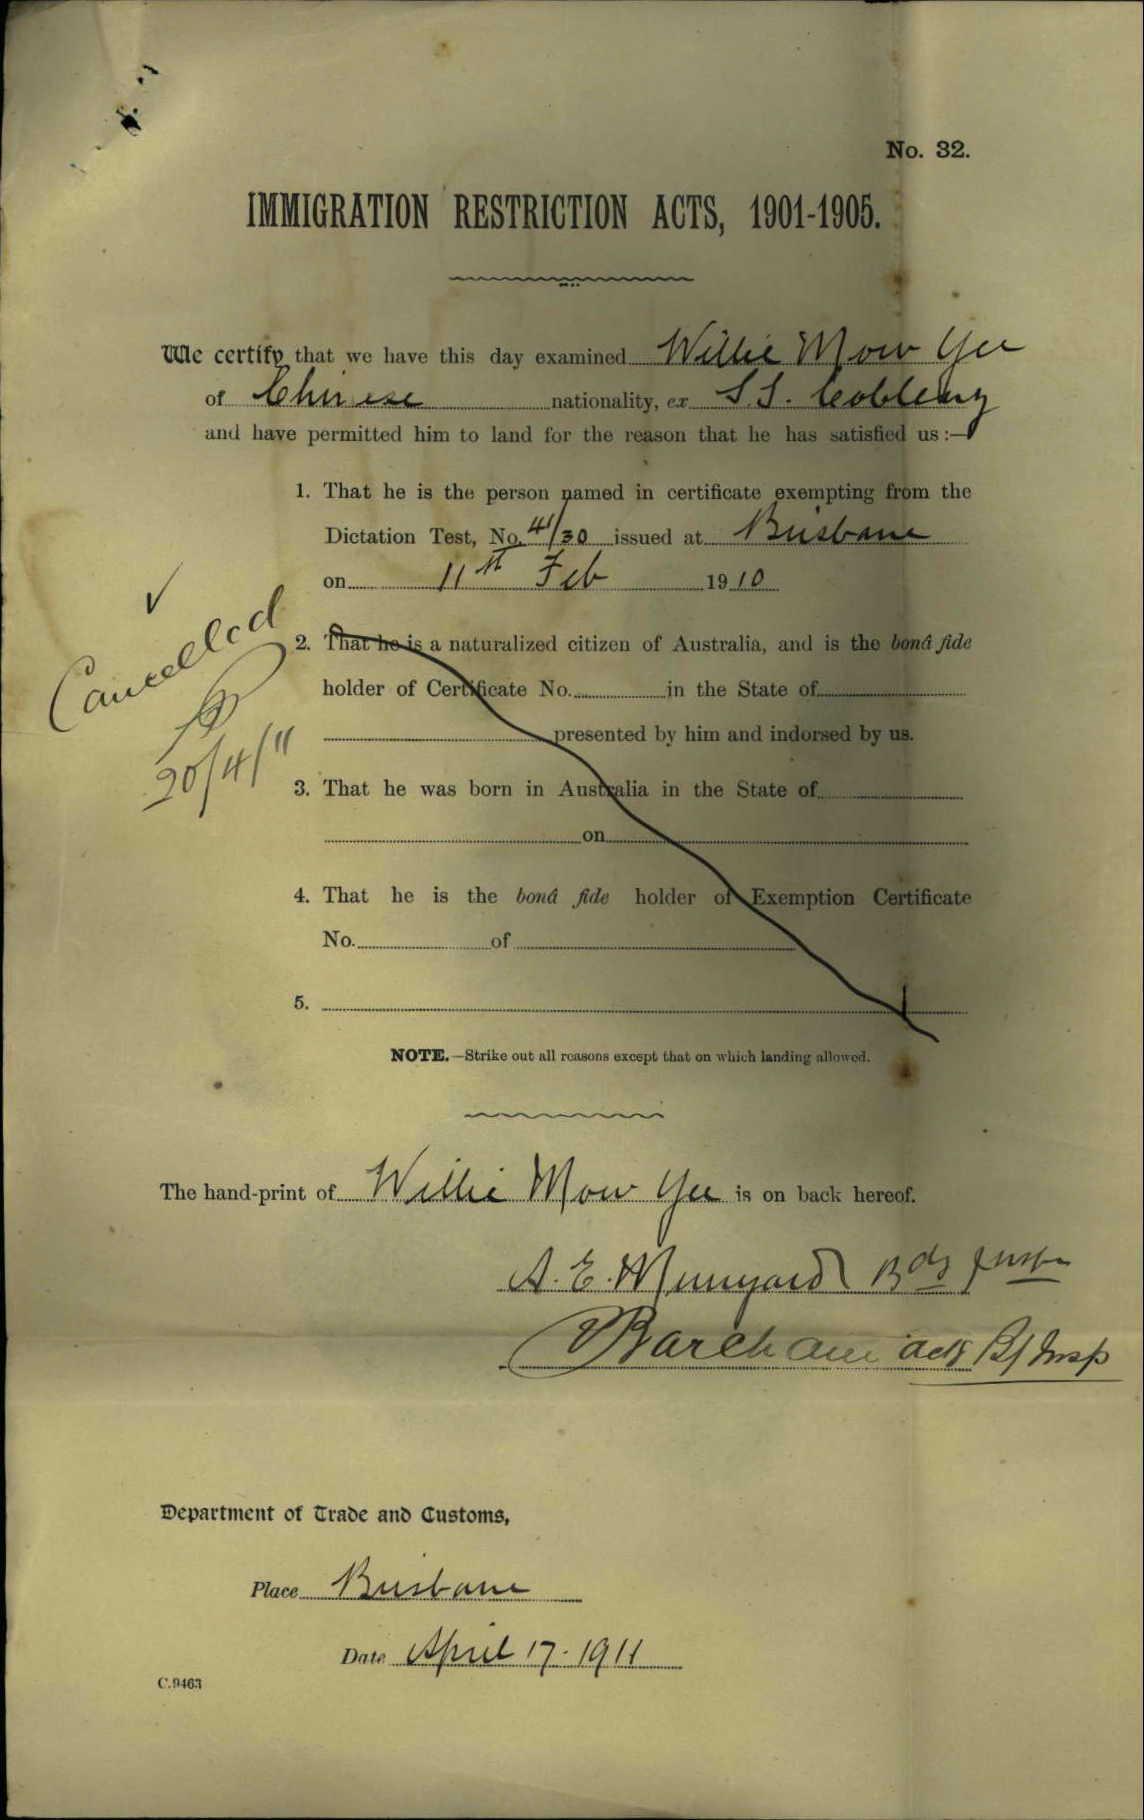 No. 32.
IMMIGRATION RESTRICTION ACTS, 1901-1905.
We certify that we have this day examined Willie Mow Yee
of Chinese nationality, ex S.S. Coblenz
and have permitted him to land for the reason that he has satisfied us :—
1. That he is the person named in certificate exempting from the
Dictation Test, No. 41/30 issued at Brisbane
on 11th Feb 1910
Cancelled
20/4/11
2. That he is a naturalized citizen of Australia, and is the bonâ fide
holder of Certificate No. in the State of
presented by him and indorsed by us.
3. That he was born in Australia in the State of
on
4. That he is the bonâ fide holder of Exemption Certificate
No. of
5.
NOTE.—Strike out all reasons except that on which landing allowed.
The hand-print of Willie Mow Yee is on back hereof.
A. E. Munyard Bdg Insp
Barcham actg Bg Insp
Department of Trade and Customs,
Place Brisbane
Date April 17. 1911
C.9463